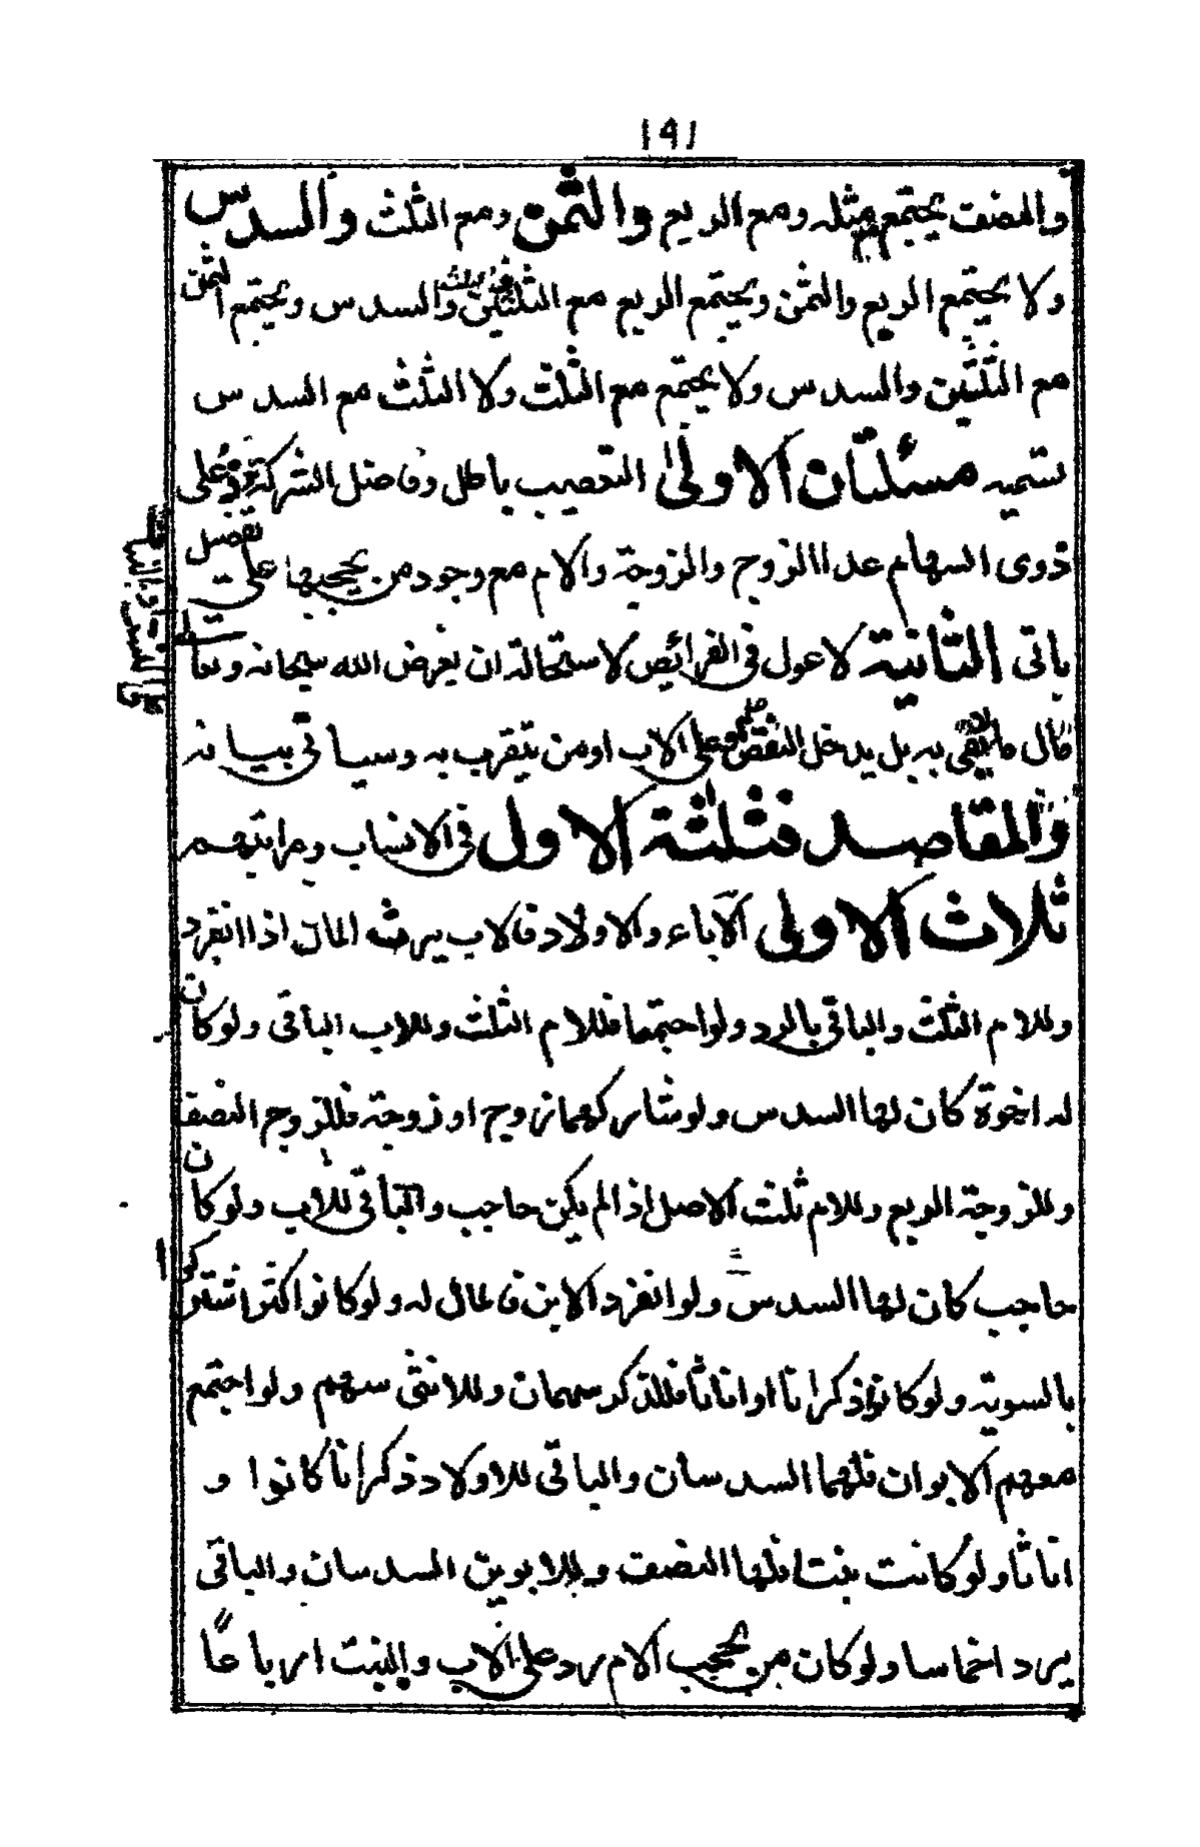 ١٩١
والنصف يجتمع مع مثله ومع الربع والثمن ومع الثلث والسدس
ولا يجتمع الربع والثمن ويجتمع الربع مع الثلثين والثلث والسدس ويجتمع الثمن
مع الثلثين والسدس ولا يجتمع مع الثلث ولا الثلث مع السدس
تسميه مسئلتان الاولى التعصيب باطل وفاضل الشركة يرد على
ذوى السهام عدا الزوج والزوجة والام مع وجود من يحجبها على
باتى الثانية لا عول فى الفرائض لاستحالة ان يفرض الله سبحانه وتعالى
مالا يفى به بل يدخل النقص على الاب او من يتقرب به وسياتى بيانه
والمقاصد فثلثة الاول فى الانساب ومراتبهم
ثلاث الاولى الآباء والاولاد فالاب يرث المال اذا انفرد
وللام الثلث والباقى بالرد ولو اجتمعا فللام الثلث وللاب الباقى ولو كان
له اخوة كان لها السدس ولو شاركهما زوج او زوجة فللزوج النصف
وللزوجة الربع وللام ثلث الاصل اذا لم يكن حاجب والباقى للاب ولو كان
حاجب كان لها السدس ولو انفرد الابن فالمال له ولو كانوا اكثر اشتركوا
بالسوية ولو كانوا ذكرانا او اناثا فللذكر سهمان وللانثى سهم ولو اجتمع
معهم الابوان فلهما السدسان والباقى للاولاد ذكرانا كانوا و
اناثا ولو كانت بنت فلها النصف وللابوين السدسان والباقى
يرد اخماسا ولو كان من يحجب الام رد على الاب والبنت ارباعًا